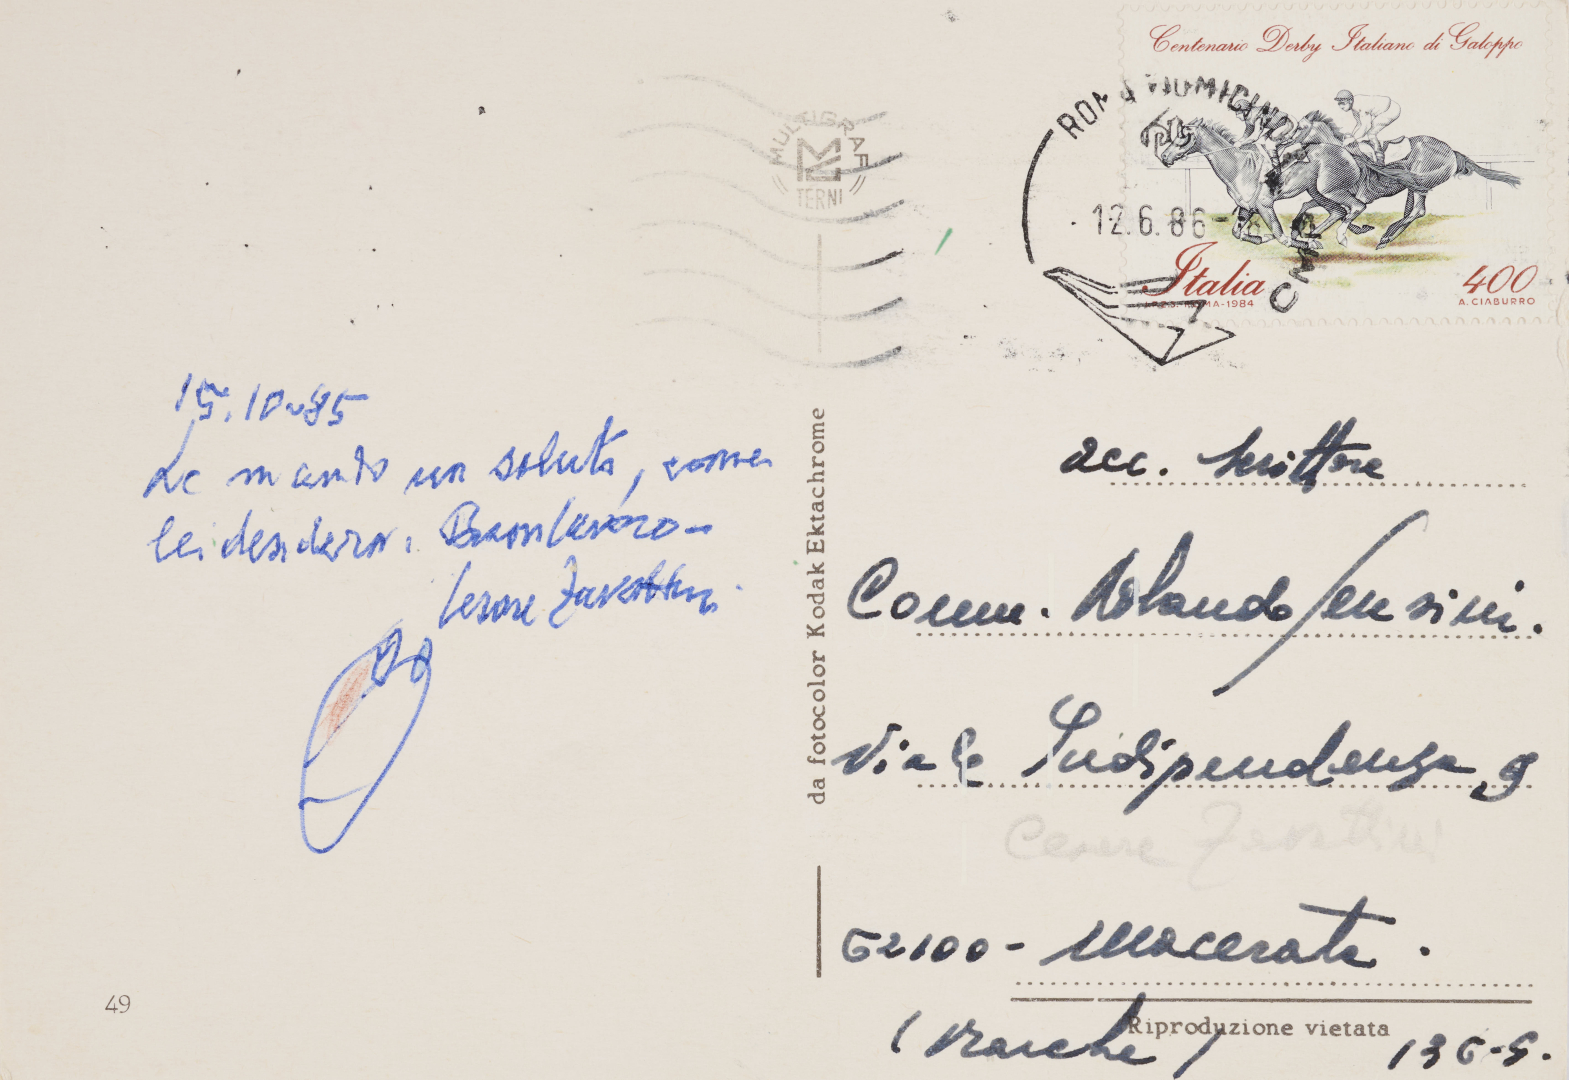 Centenario Derby Italiano di Galoppo
ROMA FIUMICINO
12.6.86-18
CMP
Italia
400
I.P.Z.S. ROMA-1984
A. CIABURRO
MULTIGRAF
TERNI
15.10-85
Le mando un saluto, come
lei desidera. Buon lavoro-
Cesare Zavattini
da fotocolor Kodak Ektachrome
acc. Scrittore
Comm. Rolando Sensini.
Viale Indipendenza, 9
Cesare Zavattini
62100 - Macerata.
(Marche)
Riproduzione vietata
136-9.
49